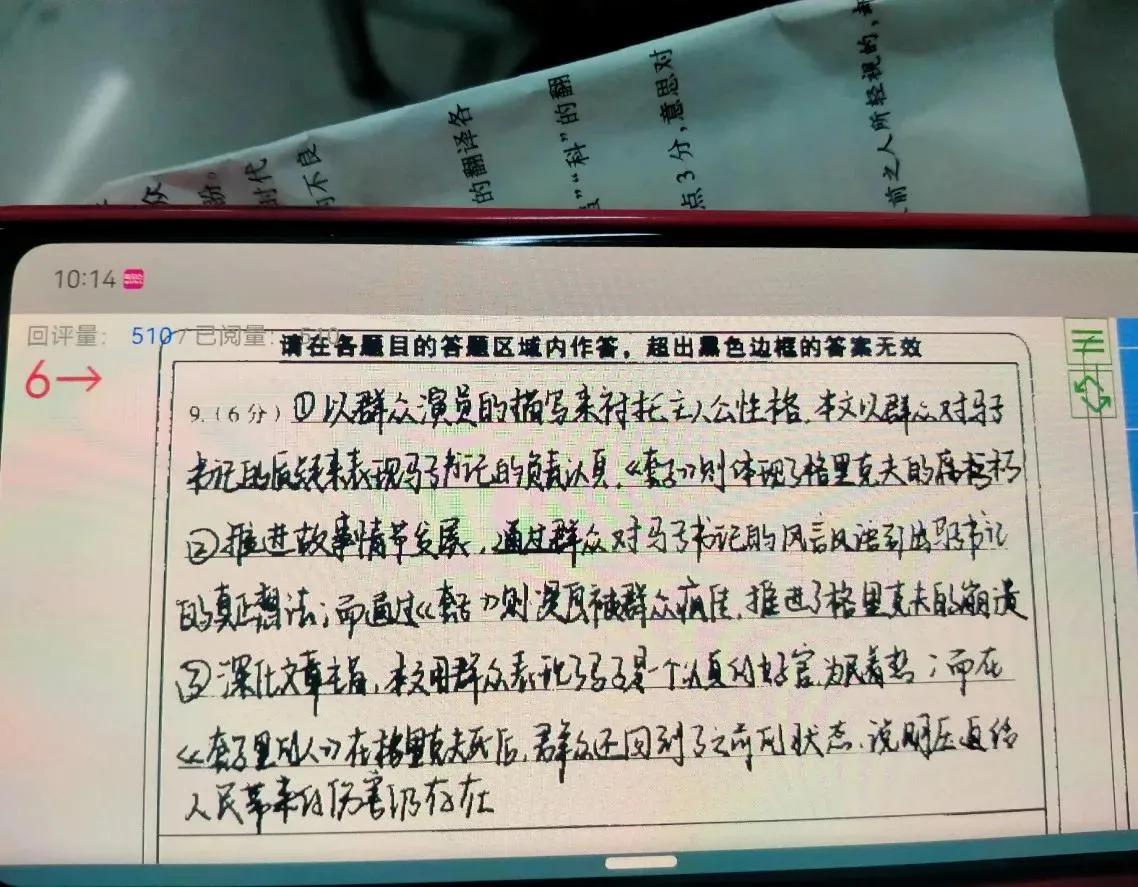 众
盼。
时代
不良
的翻译各
”“科”的翻
点3分,意思对
前之人所轻视的,
10:14
回评量: 510 / 已阅量: 510
6→
请在各题目的答题区域内作答,超出黑色边框的答案无效
9.(6分)①以群众演员的描写来衬托主人公性格,本文以群众对马子
书记的反馈来表现马子书记的负责认真,《套子》则体现了格里克夫的腐朽
②推进故事情节发展,通过群众对马子书记的风言风语引出马子书记
的真正想法;而通过《套子》则滑稽被群众,推进了格里克夫的崩溃
③深化文章主旨,本文用群众表现了马子是一个认真的好官,为民着想;而在
《套子里的人》在格里克夫死后,群众还回到了之前的状态,说明压迫给
人民带来的伤害仍存在